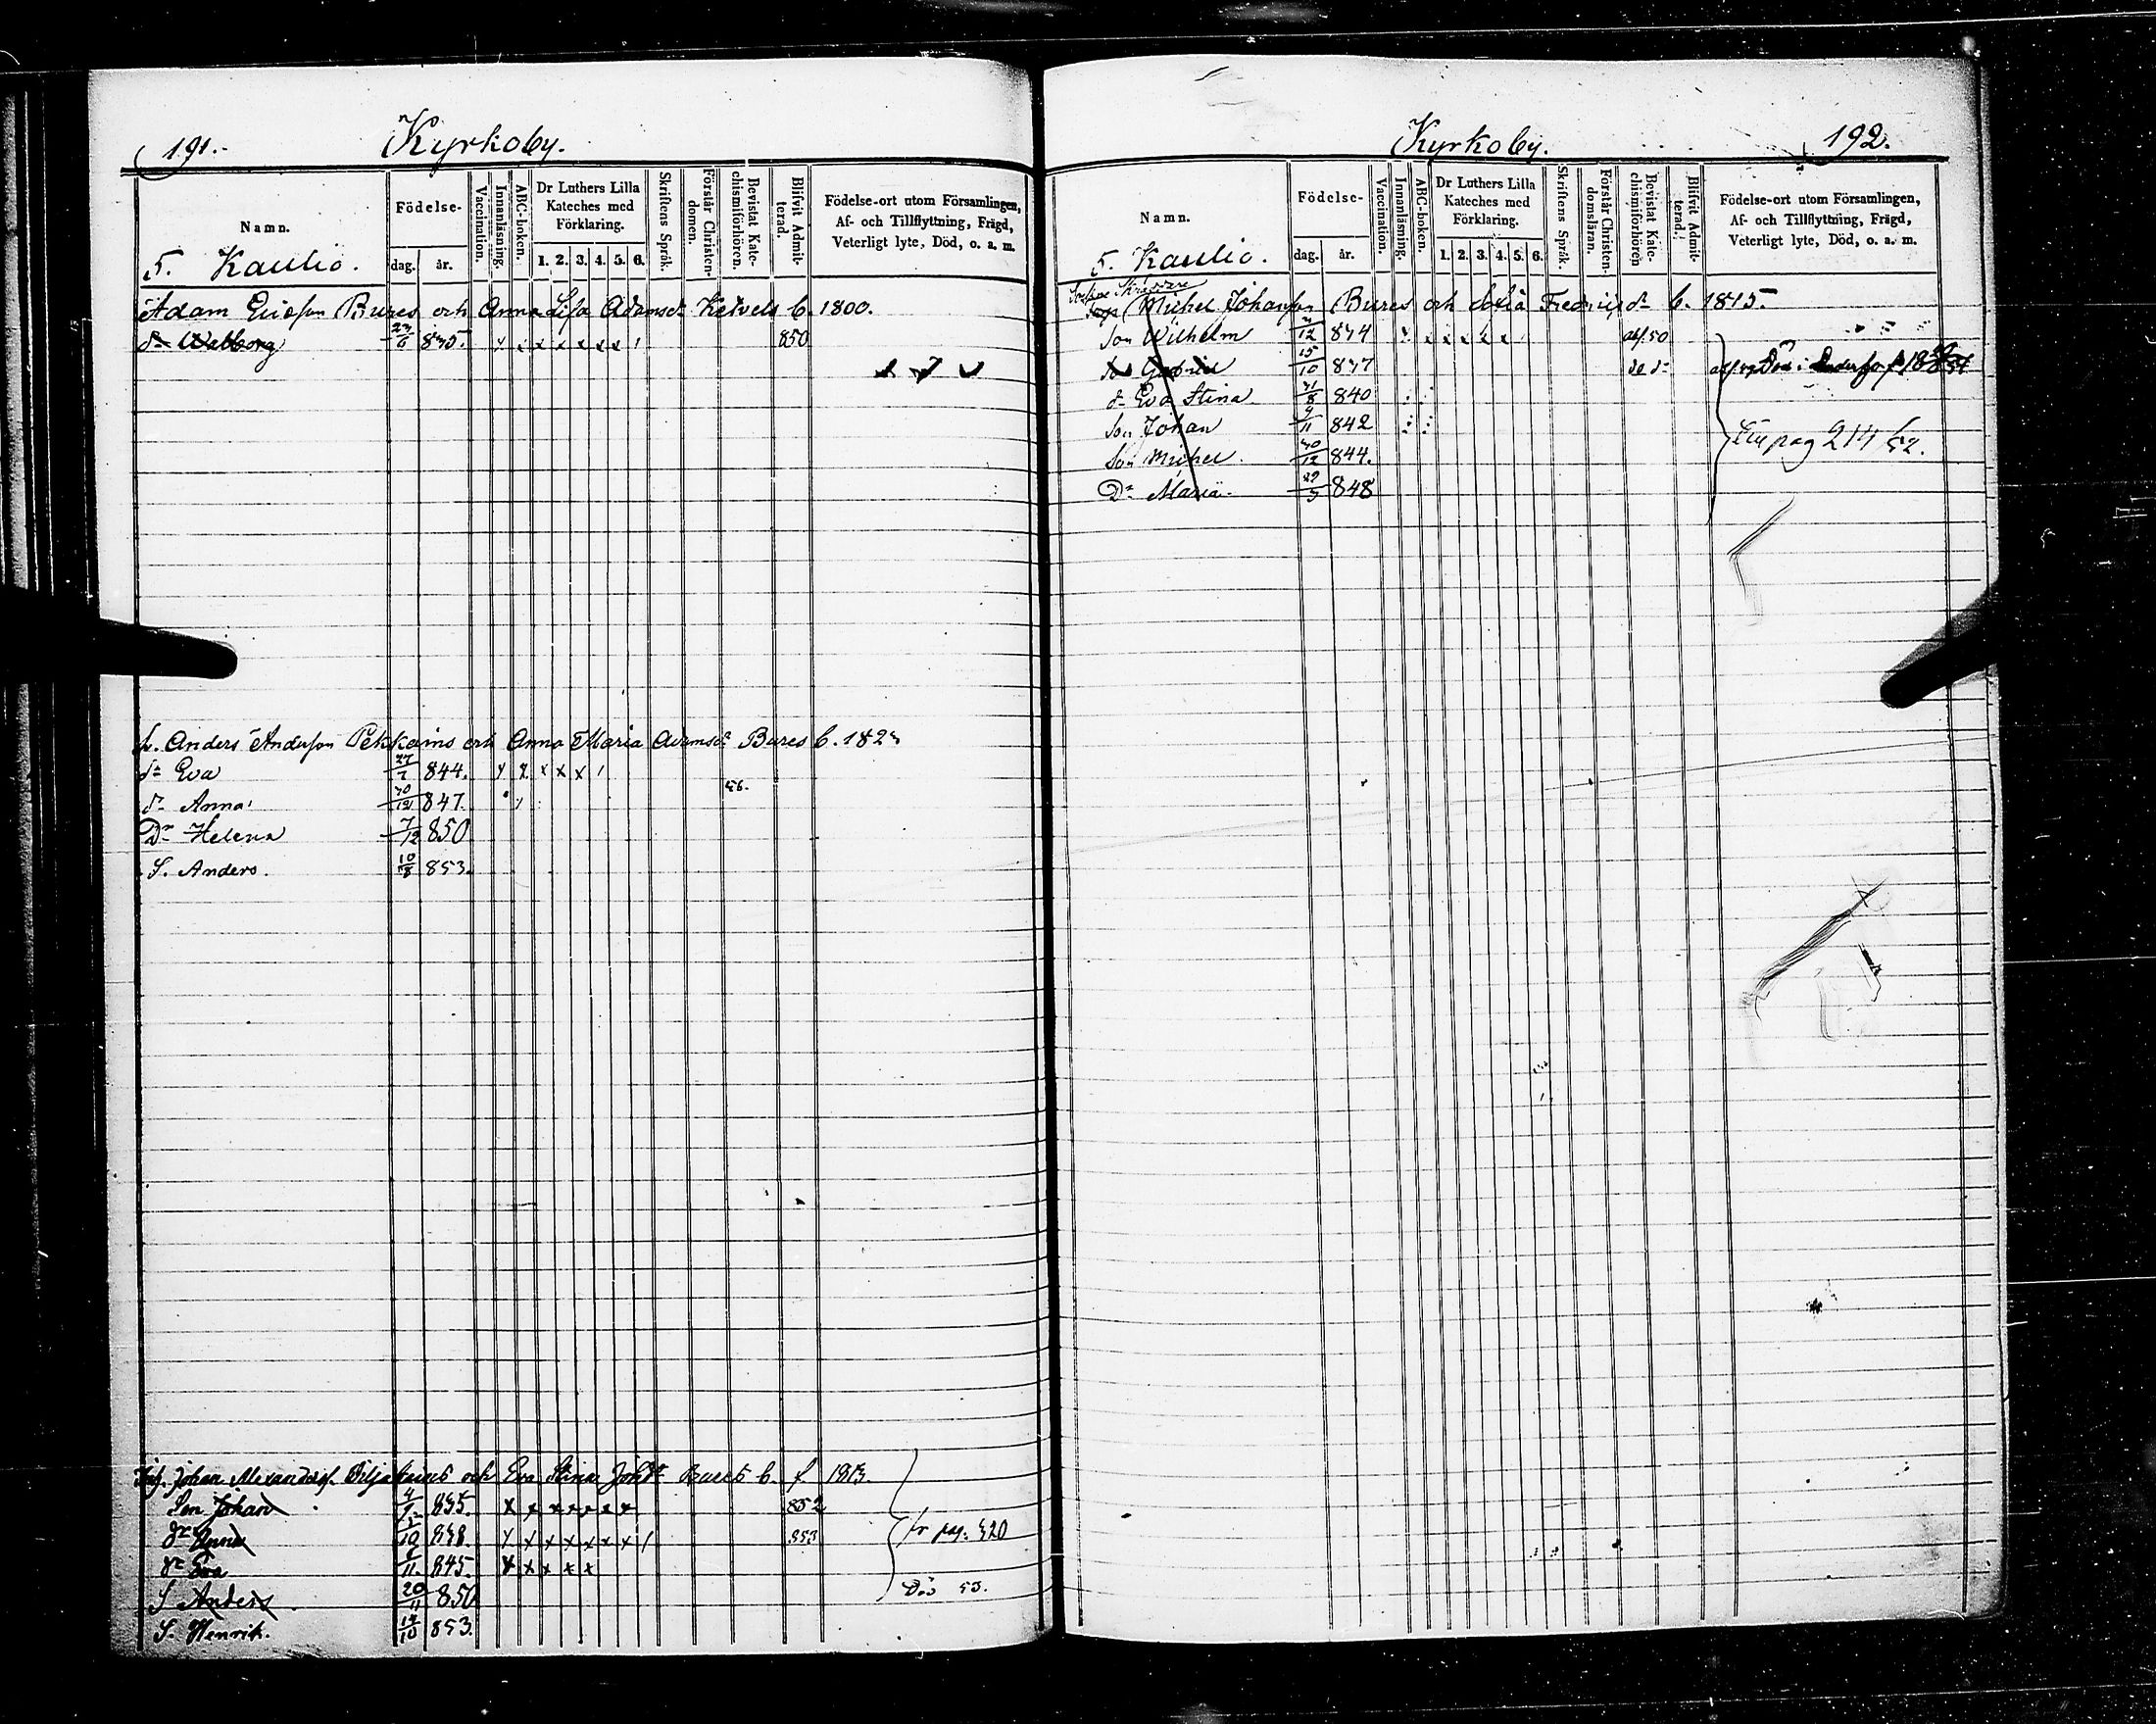 191.
Kyrkoby.
Namn.
Födelse-
dag. år.
Vaccination.
Innanläsning.
ABC-boken.
Dr Luthers Lilla
Kateches med
Förklaring.
1. 2. 3. 4. 5. 6.
Skriftens Språk.
Förstår Christen-
domen.
Bevistat Kate-
chismiförhören.
Blifvit Admit-
terad.
Födelse-ort utom Församlingen,
Af- och Tillflyttning, Frägd,
Veterligt lyte, Död, o. a. m.
5. Kaulio.
Adam Ericsson Bures och Anna Lisa Adamsdr Ketvels b. 1800.
dr Walborg 23/6 835. 850
Anders Andersson Pekkains och Anna Maria Adamsdr Bures b.
dr Eva 844. 56.
dr Anna 30/12 847.
Dr Helena 7/12 850
S. Anders. 10/8 853.
Johan Alexandersson och Eva Stina Johdr Bures b. f 1813.
Son Johan 835. 852
dr Anna 838. 853
fr pag. 320
dr Eva 845.
S Anders 20/11 850 Död 53.
S. Henrik. 853.
Kyrkoby.
192.
Namn.
Födelse-
dag. år.
Vaccination.
Innanläsning.
ABC-boken.
Dr Luthers Lilla
Kateches med
Förklaring.
1. 2. 3. 4. 5. 6.
Skriftens Språk.
Förstår Christen-
domsläran.
Bevistat Kate-
chismiförhören
Blifvit Admit-
terad.
Födelse-ort utom Församlingen,
Af- och Tillflyttning, Frägd,
Veterligt lyte, Död, o. a. m.
5. Kaulio.
Michel Johansson Bures och Sofia Fredricsdr b. 1815.
Son Wilhelm 834 50
Son Gabriel 15/10 837
dr Eva Stina 31/8 840
Son Johan 9/11 842
Till pag 214
Son Michel. 30/12 844.
Dr Maria. 848